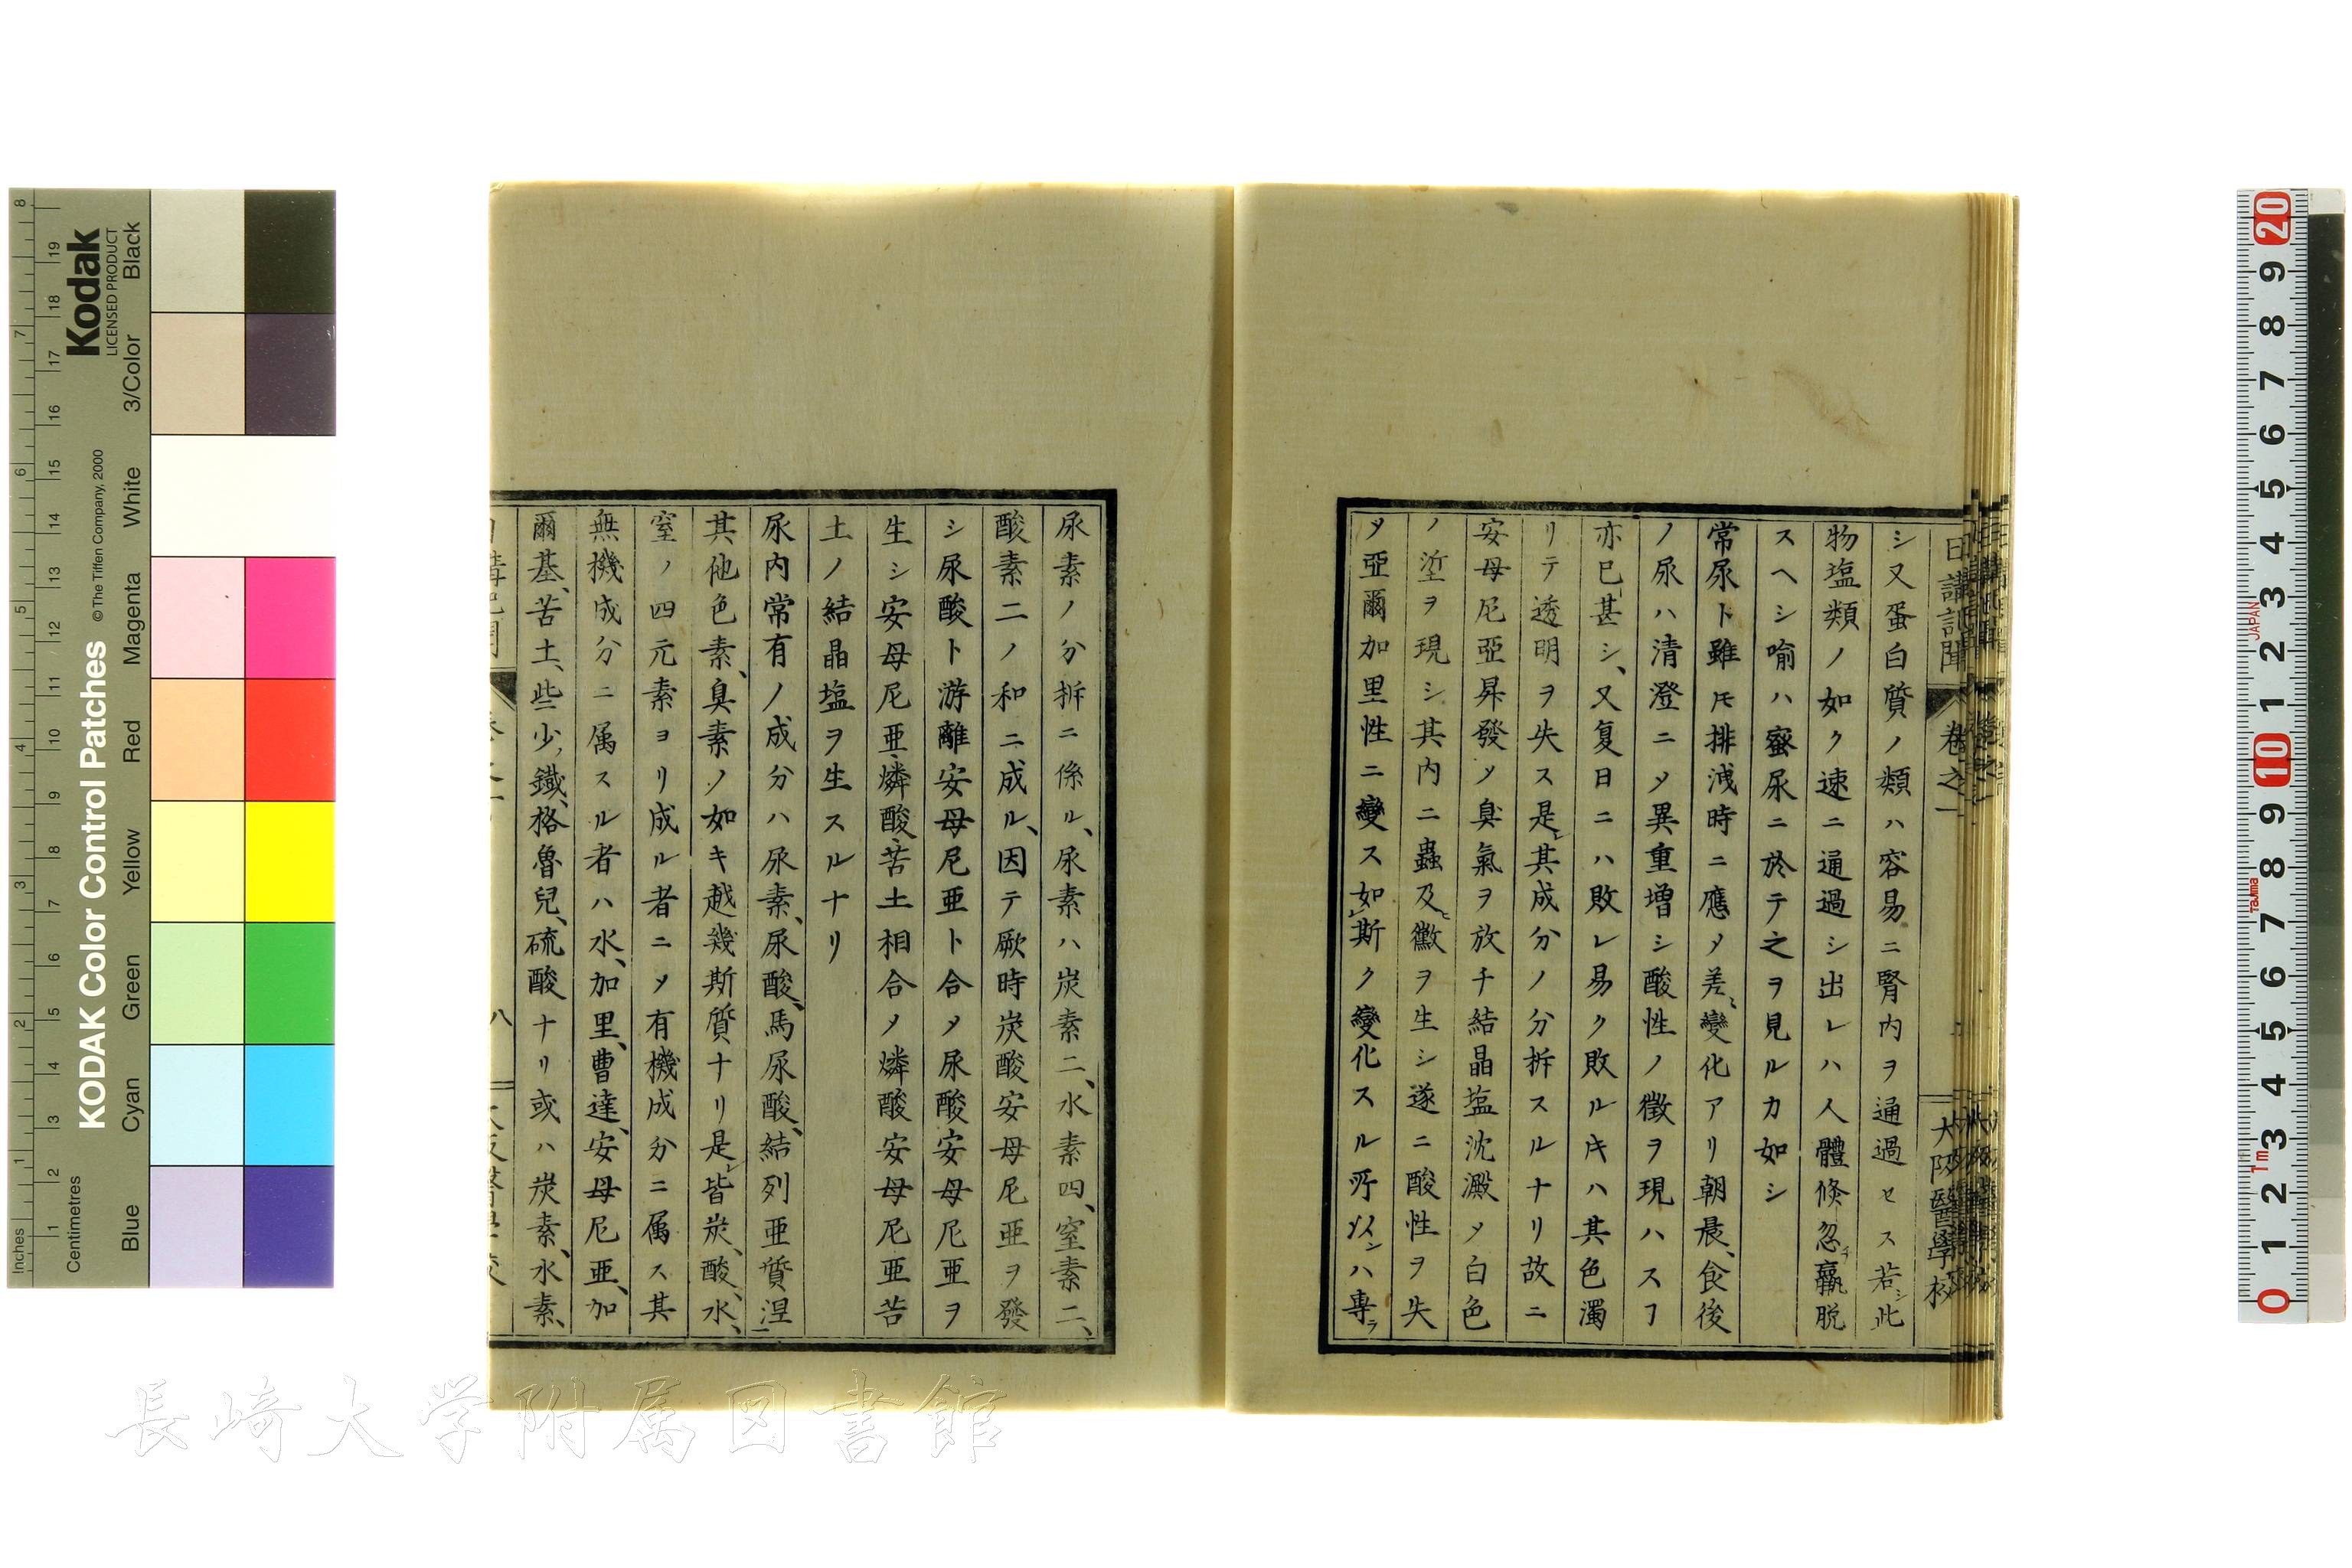 日講記聞 卷之一
大阪醫學校
シ又蛋白質ノ類ハ容易ニ腎内ヲ通過セス若シ此
物塩類ノ如ク速ニ通過シ出レハ人體倏忽チ羸脱
スヘシ喩ハ蜜尿ニ於テ之ヲ見ルカ如シ
常尿ト雖𪜈排泄時ニ應〆差々變化アリ朝晨、食後
ノ尿ハ清澄ニ〆異重増シ酸性ノ徴ヲ現ハスヿ
亦已甚シ、又复日ニハ敗レ易ク敗ルキハ其色濁
リテ透明ヲ失ス是レ其成分ノ分拆スルナリ故ニ
安母尼亞昇發〆臭氣ヲ放チ結晶塩沈澱〆白色
ノ埿ヲ現シ其内ニ蟲及ヒ黴ヲ生シ遂ニ酸性ヲ失
〆亞爾加里性ニ變ス如レ斯ク變化スル所以ンハ専ラ
尿素ノ分拆ニ係ル、尿素ハ炭素二、水素四、窒素二、
酸素二ノ和ニ成ル、因テ厥時炭酸安母尼亞ヲ發
シ尿酸ト游離安母尼亜ト合〆尿酸安母尼亜ヲ
生シ安母尼亜燐酸苦土相合〆燐酸安母尼亜苦
土ノ結晶塩ヲ生スルナリ
尿内常有ノ成分ハ尿素、尿酸、馬尿酸、結列亜質涅
其他色素、臭素ノ如キ越幾斯質ナリ是レ皆炭、酸、水、
窒ノ四元素ヨリ成ル者ニ〆有機成分ニ属ス其
無機成分ニ属スル者ハ水、加里、曹達、安母尼亜、加
爾基、苦土、些少ノ鐵、格魯兒、硫酸ナリ或ハ炭素、水素、
八
KODAK Color Control Patches
©The Tiffen Company, 2000
Kodak
LICENSED PRODUCT
Inches
Centimetres
Blue
Cyan
Green
Yellow
Red
Magenta
White
3/Color
Black
JAPAN
Tajima
1m
長崎大学附属図書館